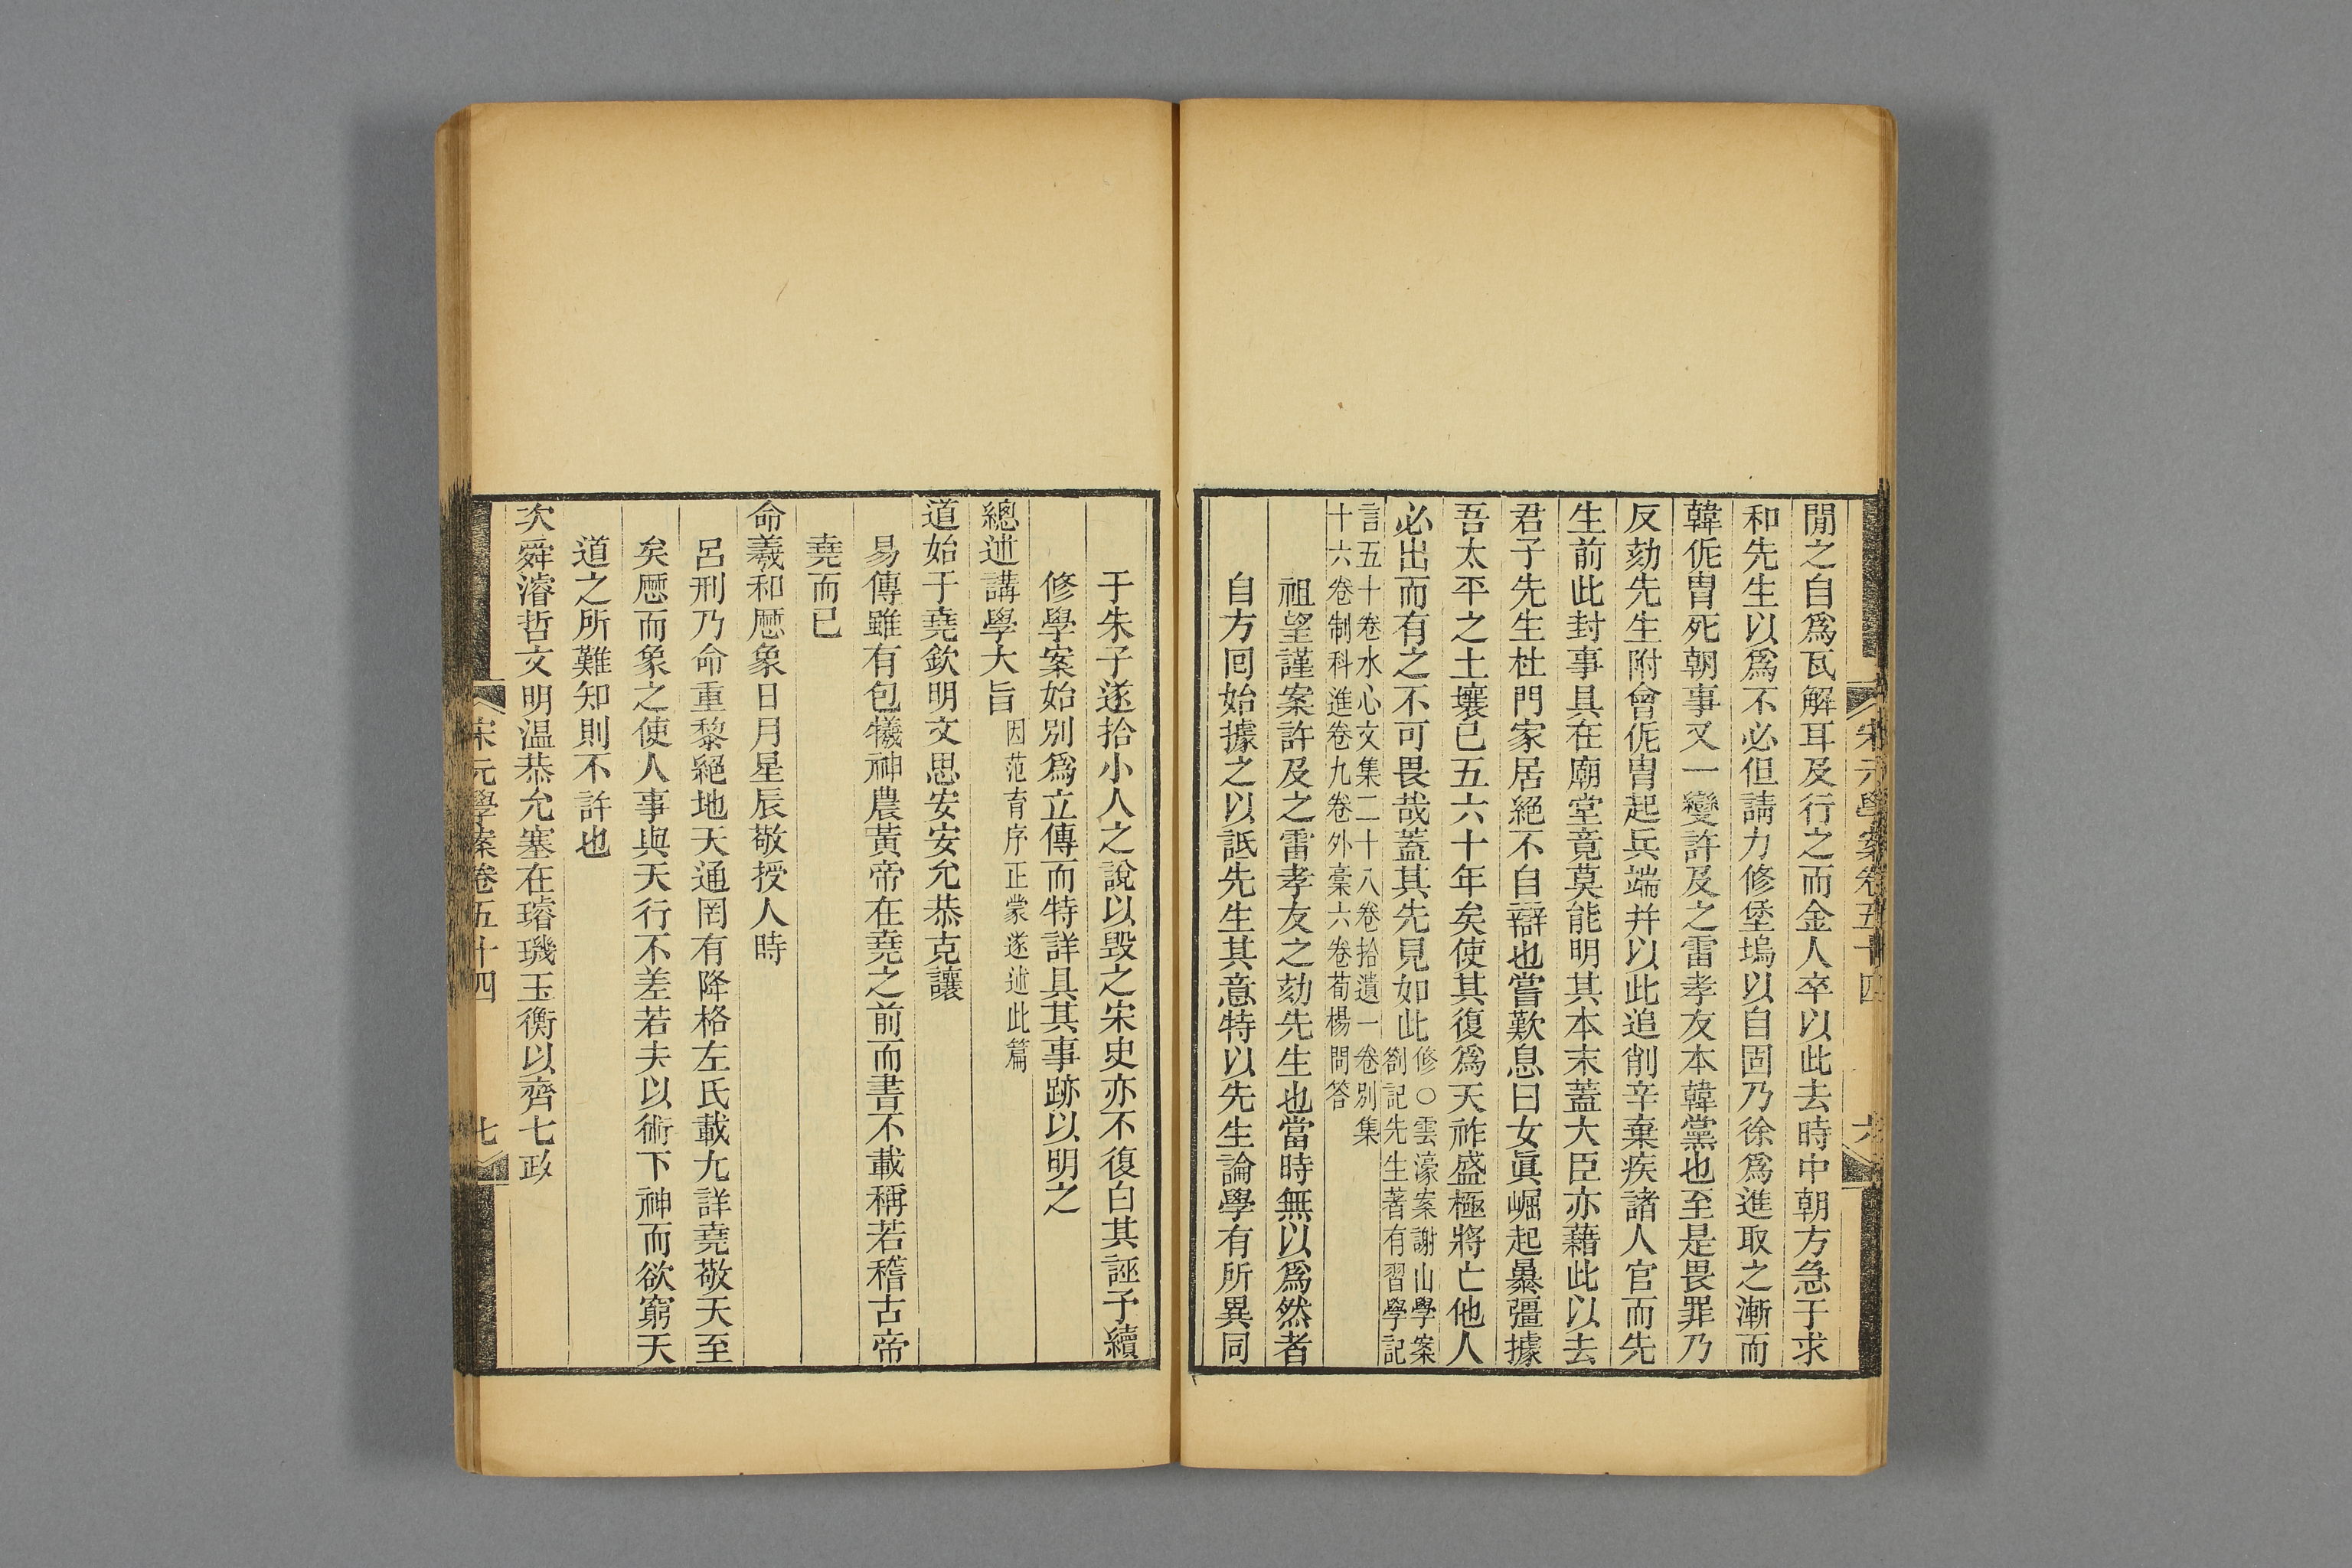 宋元學案卷五十四
六
閒之自爲瓦解耳及行之而金人卒以此去時中朝方急于求
和先生以爲不必但請力修堡塢以自固乃徐爲進取之漸而
韓侂冑死朝事又一變許及之雷孝友本韓黨也至是畏罪乃
反劾先生附會侂冑起兵端幷以此追削辛棄疾諸人官而先
生前此封事具在廟堂竟莫能明其本末蓋大臣亦藉此以去
君子先生杜門家居絕不自辯也嘗歎息曰女眞崛起暴彊據
吾太平之土壤已五六十年矣使其復爲天祚盛極將亡他人
必出而有之不可畏哉蓋其先見如此修○雲濠案謝山學案
劄記先生著有習學記
言五十卷水心文集二十八卷拾遺一卷別集
十六卷制科進卷九卷外稾六卷荀楊問答
祖望謹案許及之雷孝友之劾先生也當時無以爲然者
自方回始據之以詆先生其意特以先生論學有所異同
于朱子遂拾小人之說以毀之宋史亦不復白其誣予續
修學案始別爲立傳而特詳具其事跡以明之
總述講學大旨因范育序正蒙遂述此篇
道始于堯欽明文思安安允恭克讓
易傳雖有包犧神農黃帝在堯之前而書不載稱若稽古帝
堯而已
命羲和厯象日月星辰敬授人時
呂刑乃命重黎絕地天通罔有降格左氏載尢詳堯敬天至
矣厯而象之使人事與天行不差若夫以術下神而欲窮天
道之所難知則不許也
次舜濬哲文明温恭允塞在璿璣玉衡以齊七政
宋元學案卷五十四
七